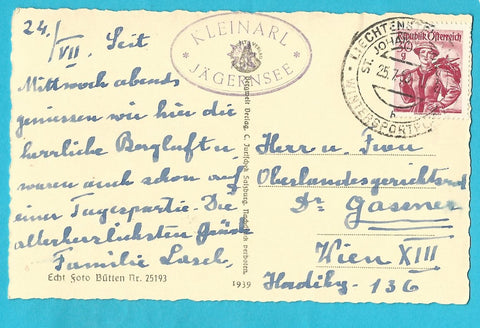 24./VII. Seit
Mittwoch abends
geniessen wir hier die
herrliche Bergluft u.
waren auch schon auf
einer Tagespartie. Die
allerherzlichsten Grüße
Familie
Echt Foto Bütten Nr. 25193
KLEINARL
JÄGERNSEE
Bergwelt Verlag, C. Jurischek Salzburg. Nachdruck verboten.
1939
Republik Österreich
ST. JOHANN
25.7.
WINTERSPORTPLATZ
Herr u. Frau
Oberlandesgerichtsrat
Dr Gassner
Wien XIII
Hadikg. 136